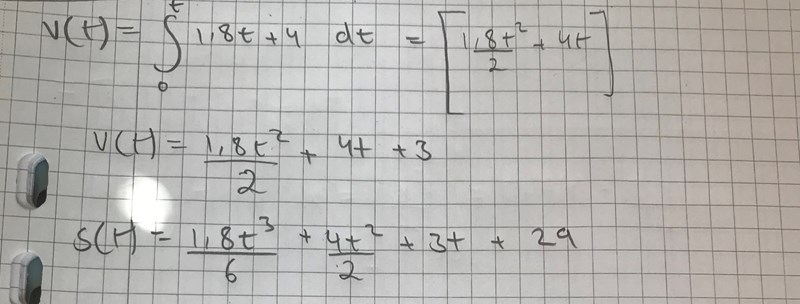 v(t) = ∫₀ᵗ 1,8t + 4 dt = [1,8t²/2 + 4t]
v(t) = 1,8t²/2 + 4t + 3
s(t) = 1,8t³/6 + 4t²/2 + 3t + 29